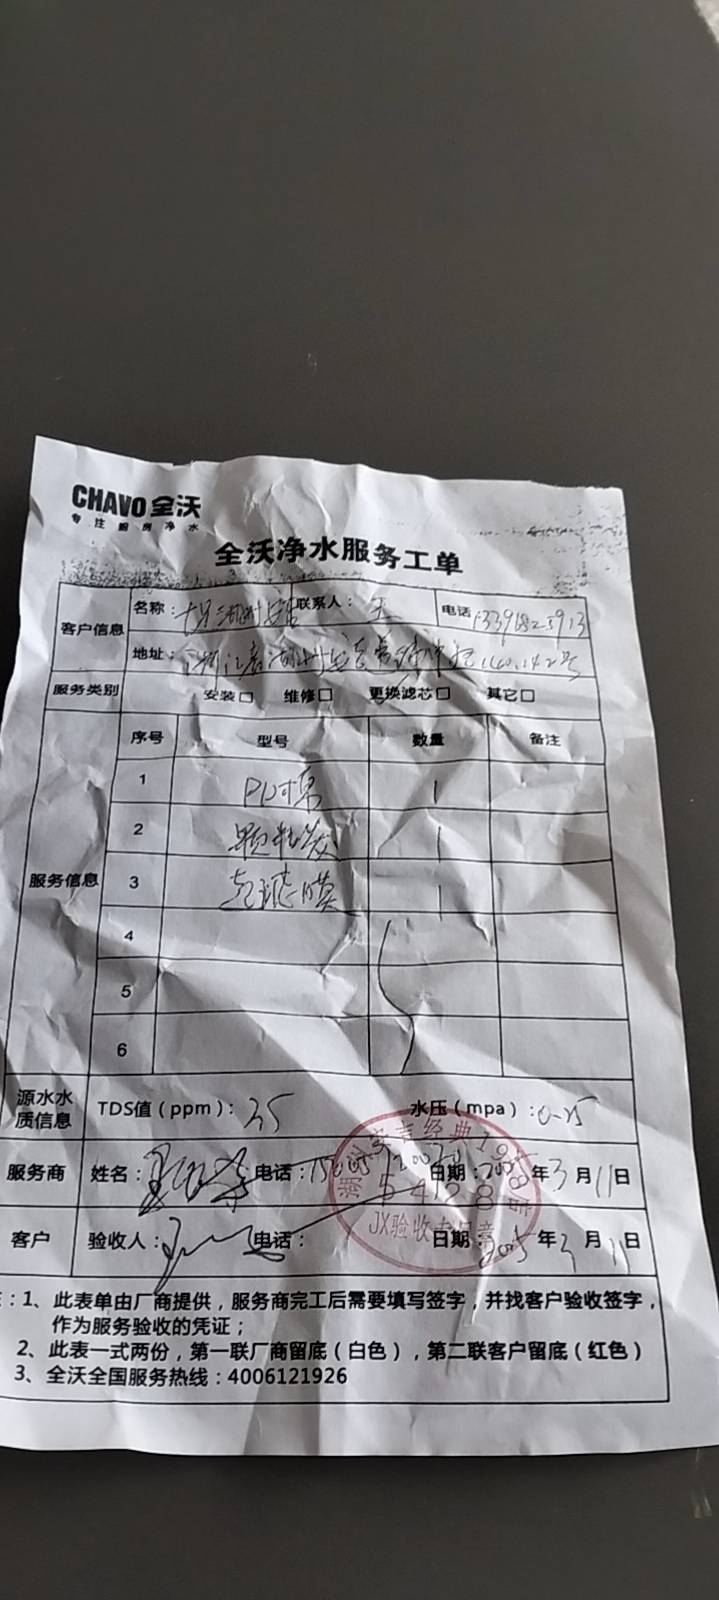 CHAVO 全沃
专注厨房净水
全沃净水服务工单
客户信息 名称： 联系人：王 电话
地址：浙江省湖州
服务类别 安装□ 维修□ 更换滤芯□ 其它□
序号 型号 数量 备注
服务信息
1 1
2 颗粒炭 1
3 超滤膜 1
4
5
6
源水水质信息 TDS值（ppm）：35 水压（mpa）：0.25
服务商 姓名： 电话： 日期：2025年3月11日
客户 验收人： 电话： 日期：2025年3月11日
安吉经典1958店
54128
JX验收专用章
：1、此表单由厂商提供，服务商完工后需要填写签字，并找客户验收签字，
作为服务验收的凭证；
2、此表一式两份，第一联厂商留底（白色），第二联客户留底（红色）
3、全沃全国服务热线：4006121926